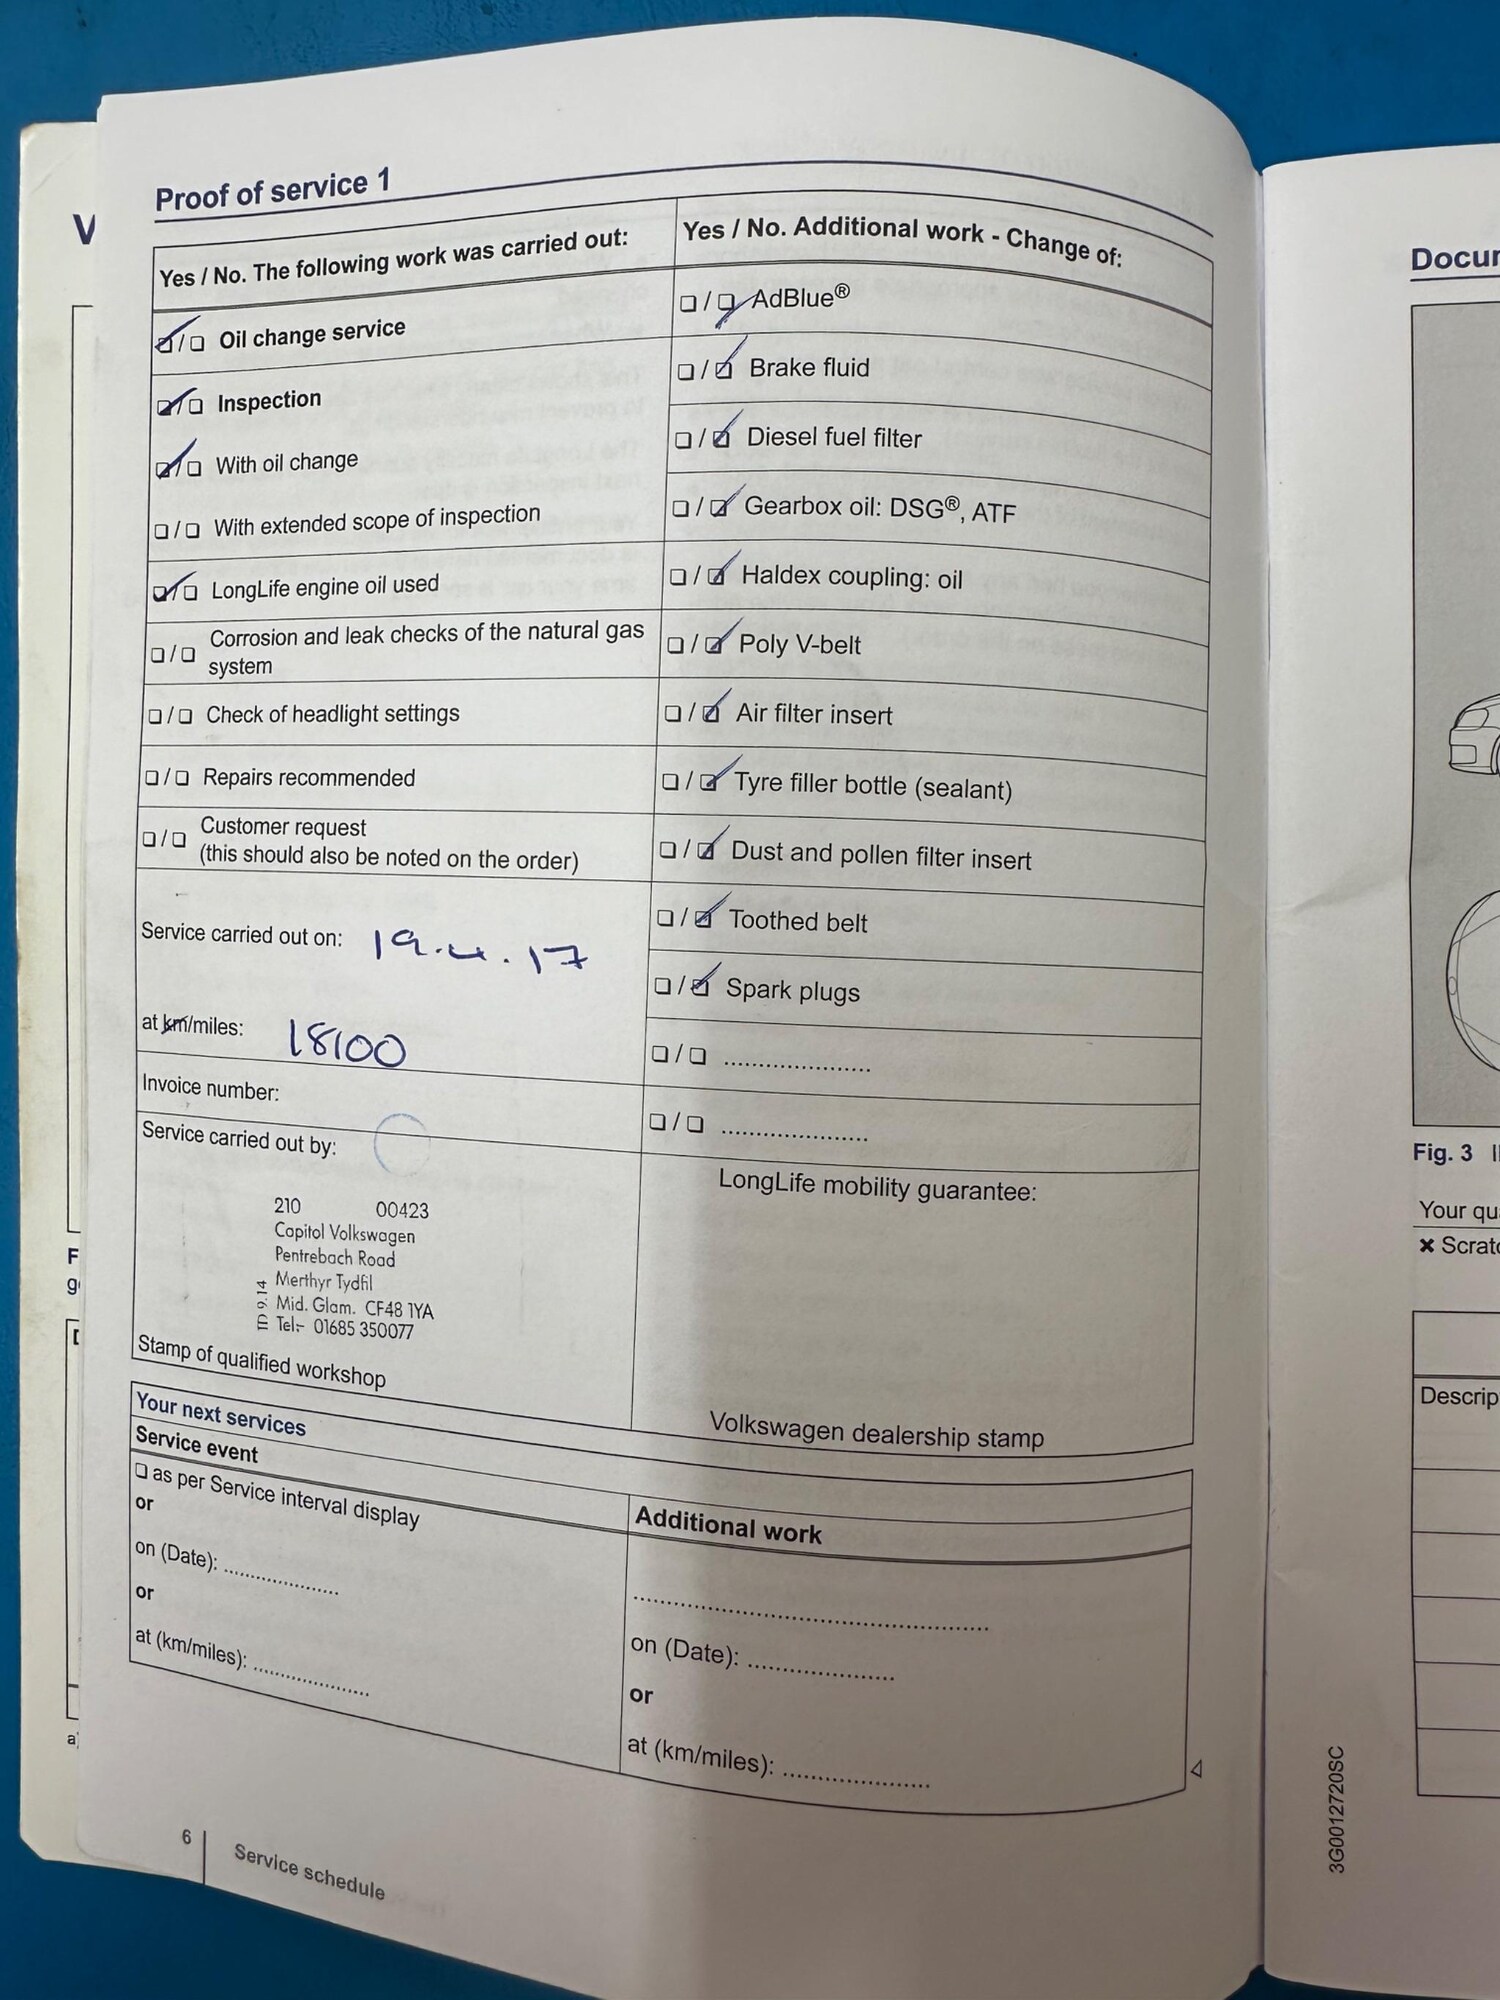 Proof of service 1
Yes / No. The following work was carried out:
☑/☐ Oil change service
☑/☐ Inspection
☑/☐ With oil change
☐/☐ With extended scope of inspection
☑/☐ LongLife engine oil used
☐/☐ Corrosion and leak checks of the natural gas
system
☐/☐ Check of headlight settings
☐/☐ Repairs recommended
☐/☐ Customer request
(this should also be noted on the order)
Service carried out on: 19.4.17
at km/miles: 18100
Invoice number:
Service carried out by:
210 00423
Capitol Volkswagen
Pentrebach Road
Merthyr Tydfil
Mid. Glam. CF48 1YA
Tel:- 01685 350077
Stamp of qualified workshop
Yes / No. Additional work - Change of:
☐/☑ AdBlue®
☐/☑ Brake fluid
☐/☑ Diesel fuel filter
☐/☑ Gearbox oil: DSG®, ATF
☐/☑ Haldex coupling: oil
☐/☑ Poly V-belt
☐/☑ Air filter insert
☐/☑ Tyre filler bottle (sealant)
☐/☑ Dust and pollen filter insert
☐/☑ Toothed belt
☐/☑ Spark plugs
☐/☐ .....................
☐/☐ .....................
LongLife mobility guarantee:
Volkswagen dealership stamp
Your next services
Service event
☐ as per Service interval display
or
on (Date): .................
or
at (km/miles): .................
Additional work
...................................................
on (Date): .....................
or
at (km/miles): .....................
6
Service schedule
Fig. 3
Your
✖
3G0012720SC